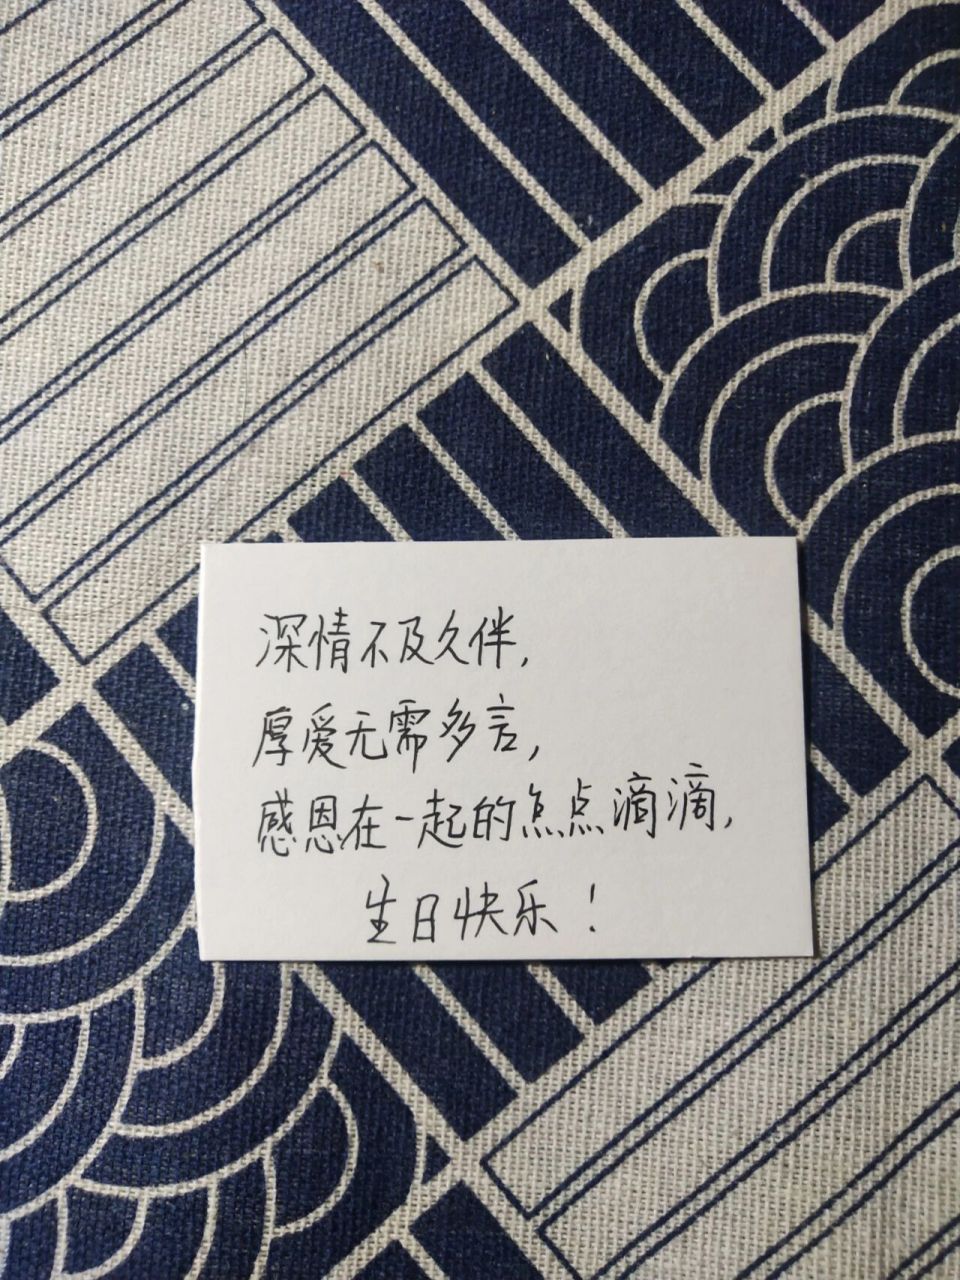 深情不及久伴,
厚爱无需多言,
感恩在一起的点点滴滴,
生日快乐!